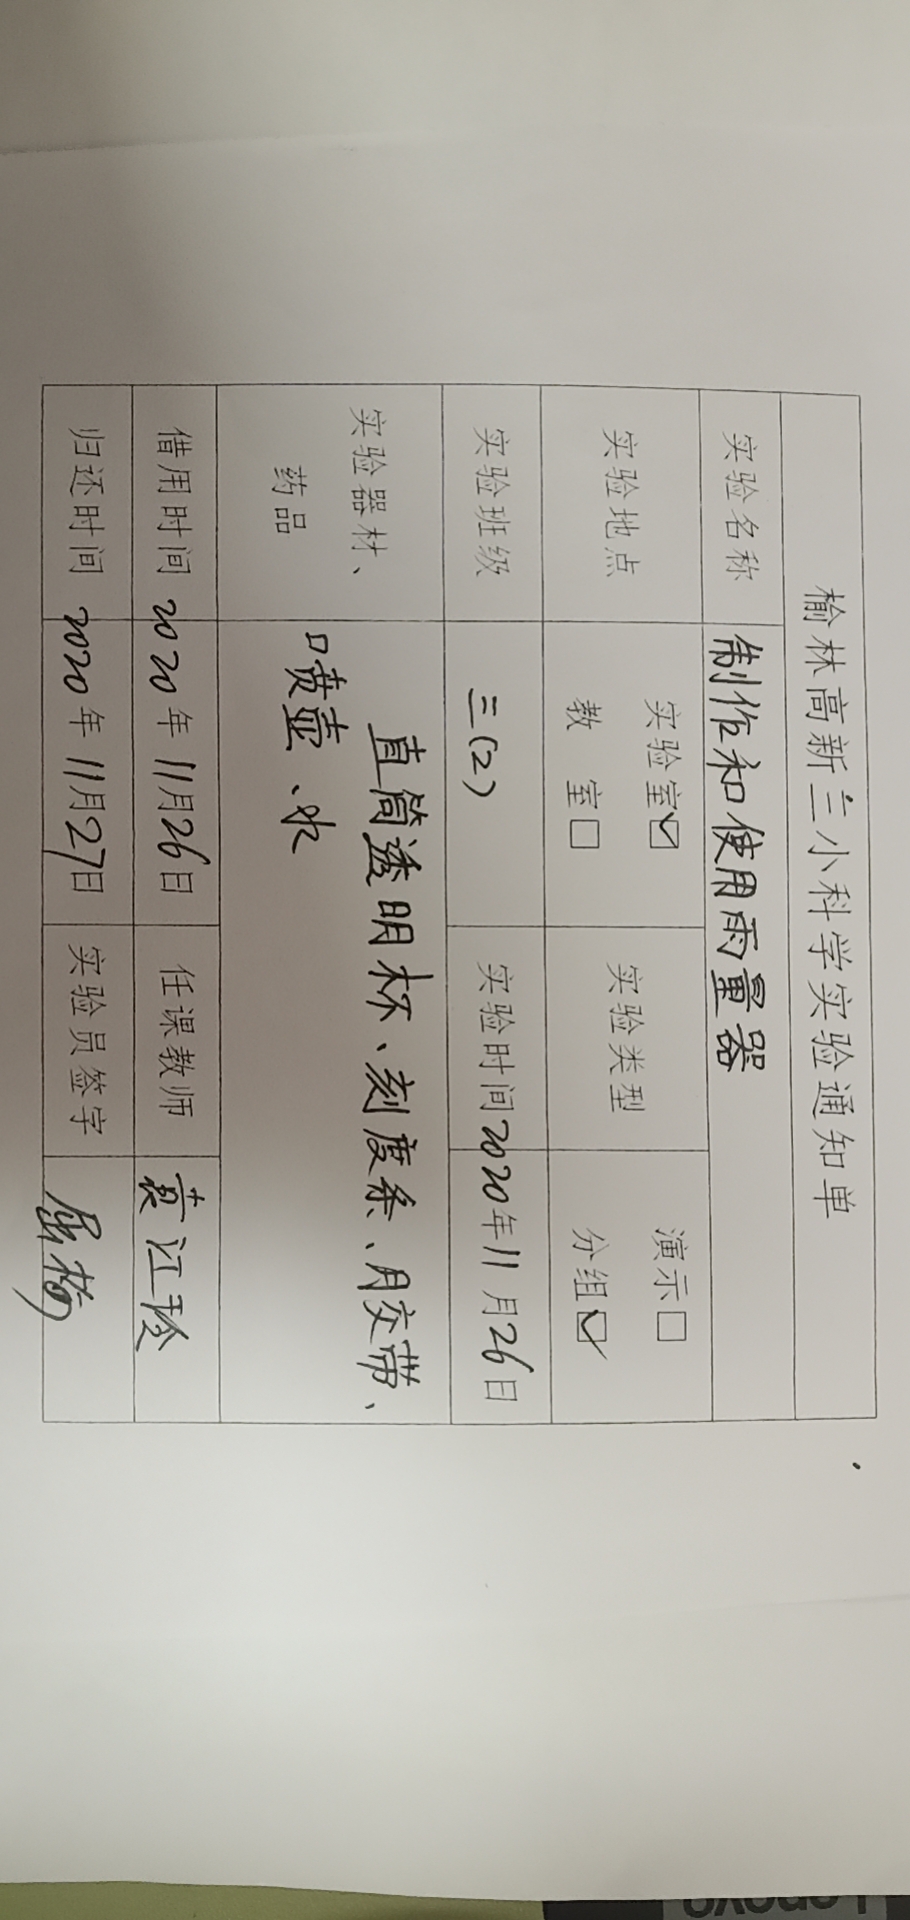 榆林高新三小科学实验通知单
实验名称 制作和使用雨量器
实验地点 实验室☑ 教 室□ 实验类型 演示□ 分组☑
实验班级 三(2) 实验时间 2020年11月26日
实验器材、药品 直筒透明杯、刻度条、胶带、
喷壶、水
借用时间 2020年11月26日 任课教师 袁江玲
归还时间 2020年11月27日 实验员签字